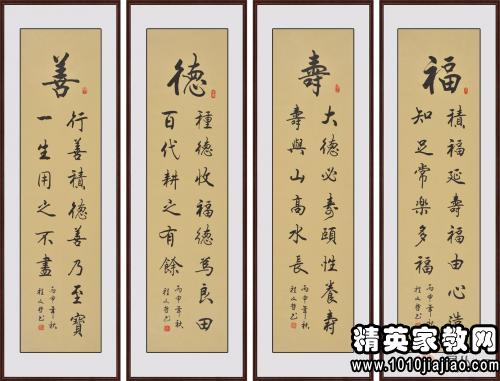 福
積福延壽福由心造
知足常樂多福
丙申年秋
壽
大德必壽頤性養壽
壽與山高水長
丙申年秋
德
種德收福德爲良田
百代耕之有餘
丙申年秋
善
行善積德善乃至寶
一生用之不盡
丙申年秋
精英家教网
www.1010jiajiao.com